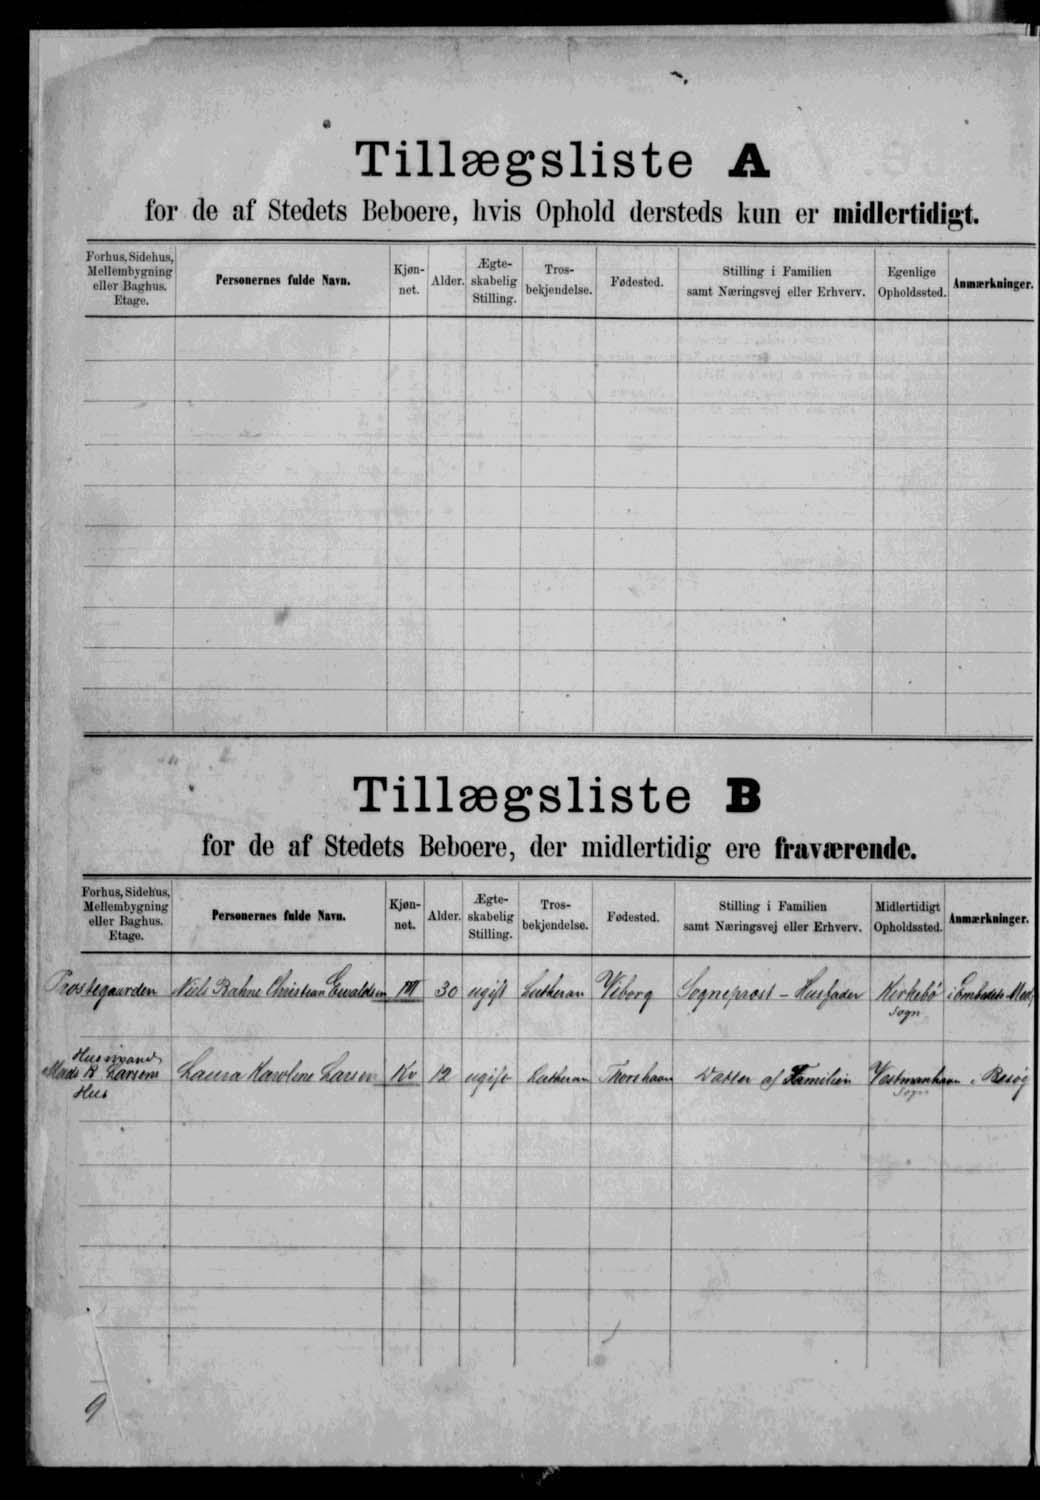 Tillægsliste A
for de af Stedets Beboere, hvis Ophold dersteds kun er midlertidigt.
Forhus, Sidehus,
Mellembygning
eller Baghus.
Etage.
Personernes fulde Navn.
Kjøn-
net.
Alder.
Ægte-
skabelig
Stilling.
Tros-
bekjendelse.
Fødested.
Stilling i Familien
samt Næringsvej eller Erhverv.
Egenlige
Opholdssted.
Anmærkninger.
Tillægsliste B
for de af Stedets Beboere, der midlertidig ere fraværende.
Forhus, Sidehus,
Mellembygning
eller Baghus.
Etage.
Personernes fulde Navn.
Kjøn-
net.
Alder.
Ægte-
skabelig
Stilling.
Tros-
bekjendelse.
Fødested.
Stilling i Familien
samt Næringsvej eller Erhverv.
Midlertidigt
Opholdssted.
Anmærkninger.
Provstegaarden Niels Christian Evaldsen M 30 ugift Lutheran Viborg Sognepræst - Husfader Kirkebø i Embeds
Sogn
Husmand
Mads Larsens Laura Karoline Larsen Kv 12 ugift Lutheran Thorshavn Datter af Familien Vestmanhavn i Besøg
Hus Sogn
9